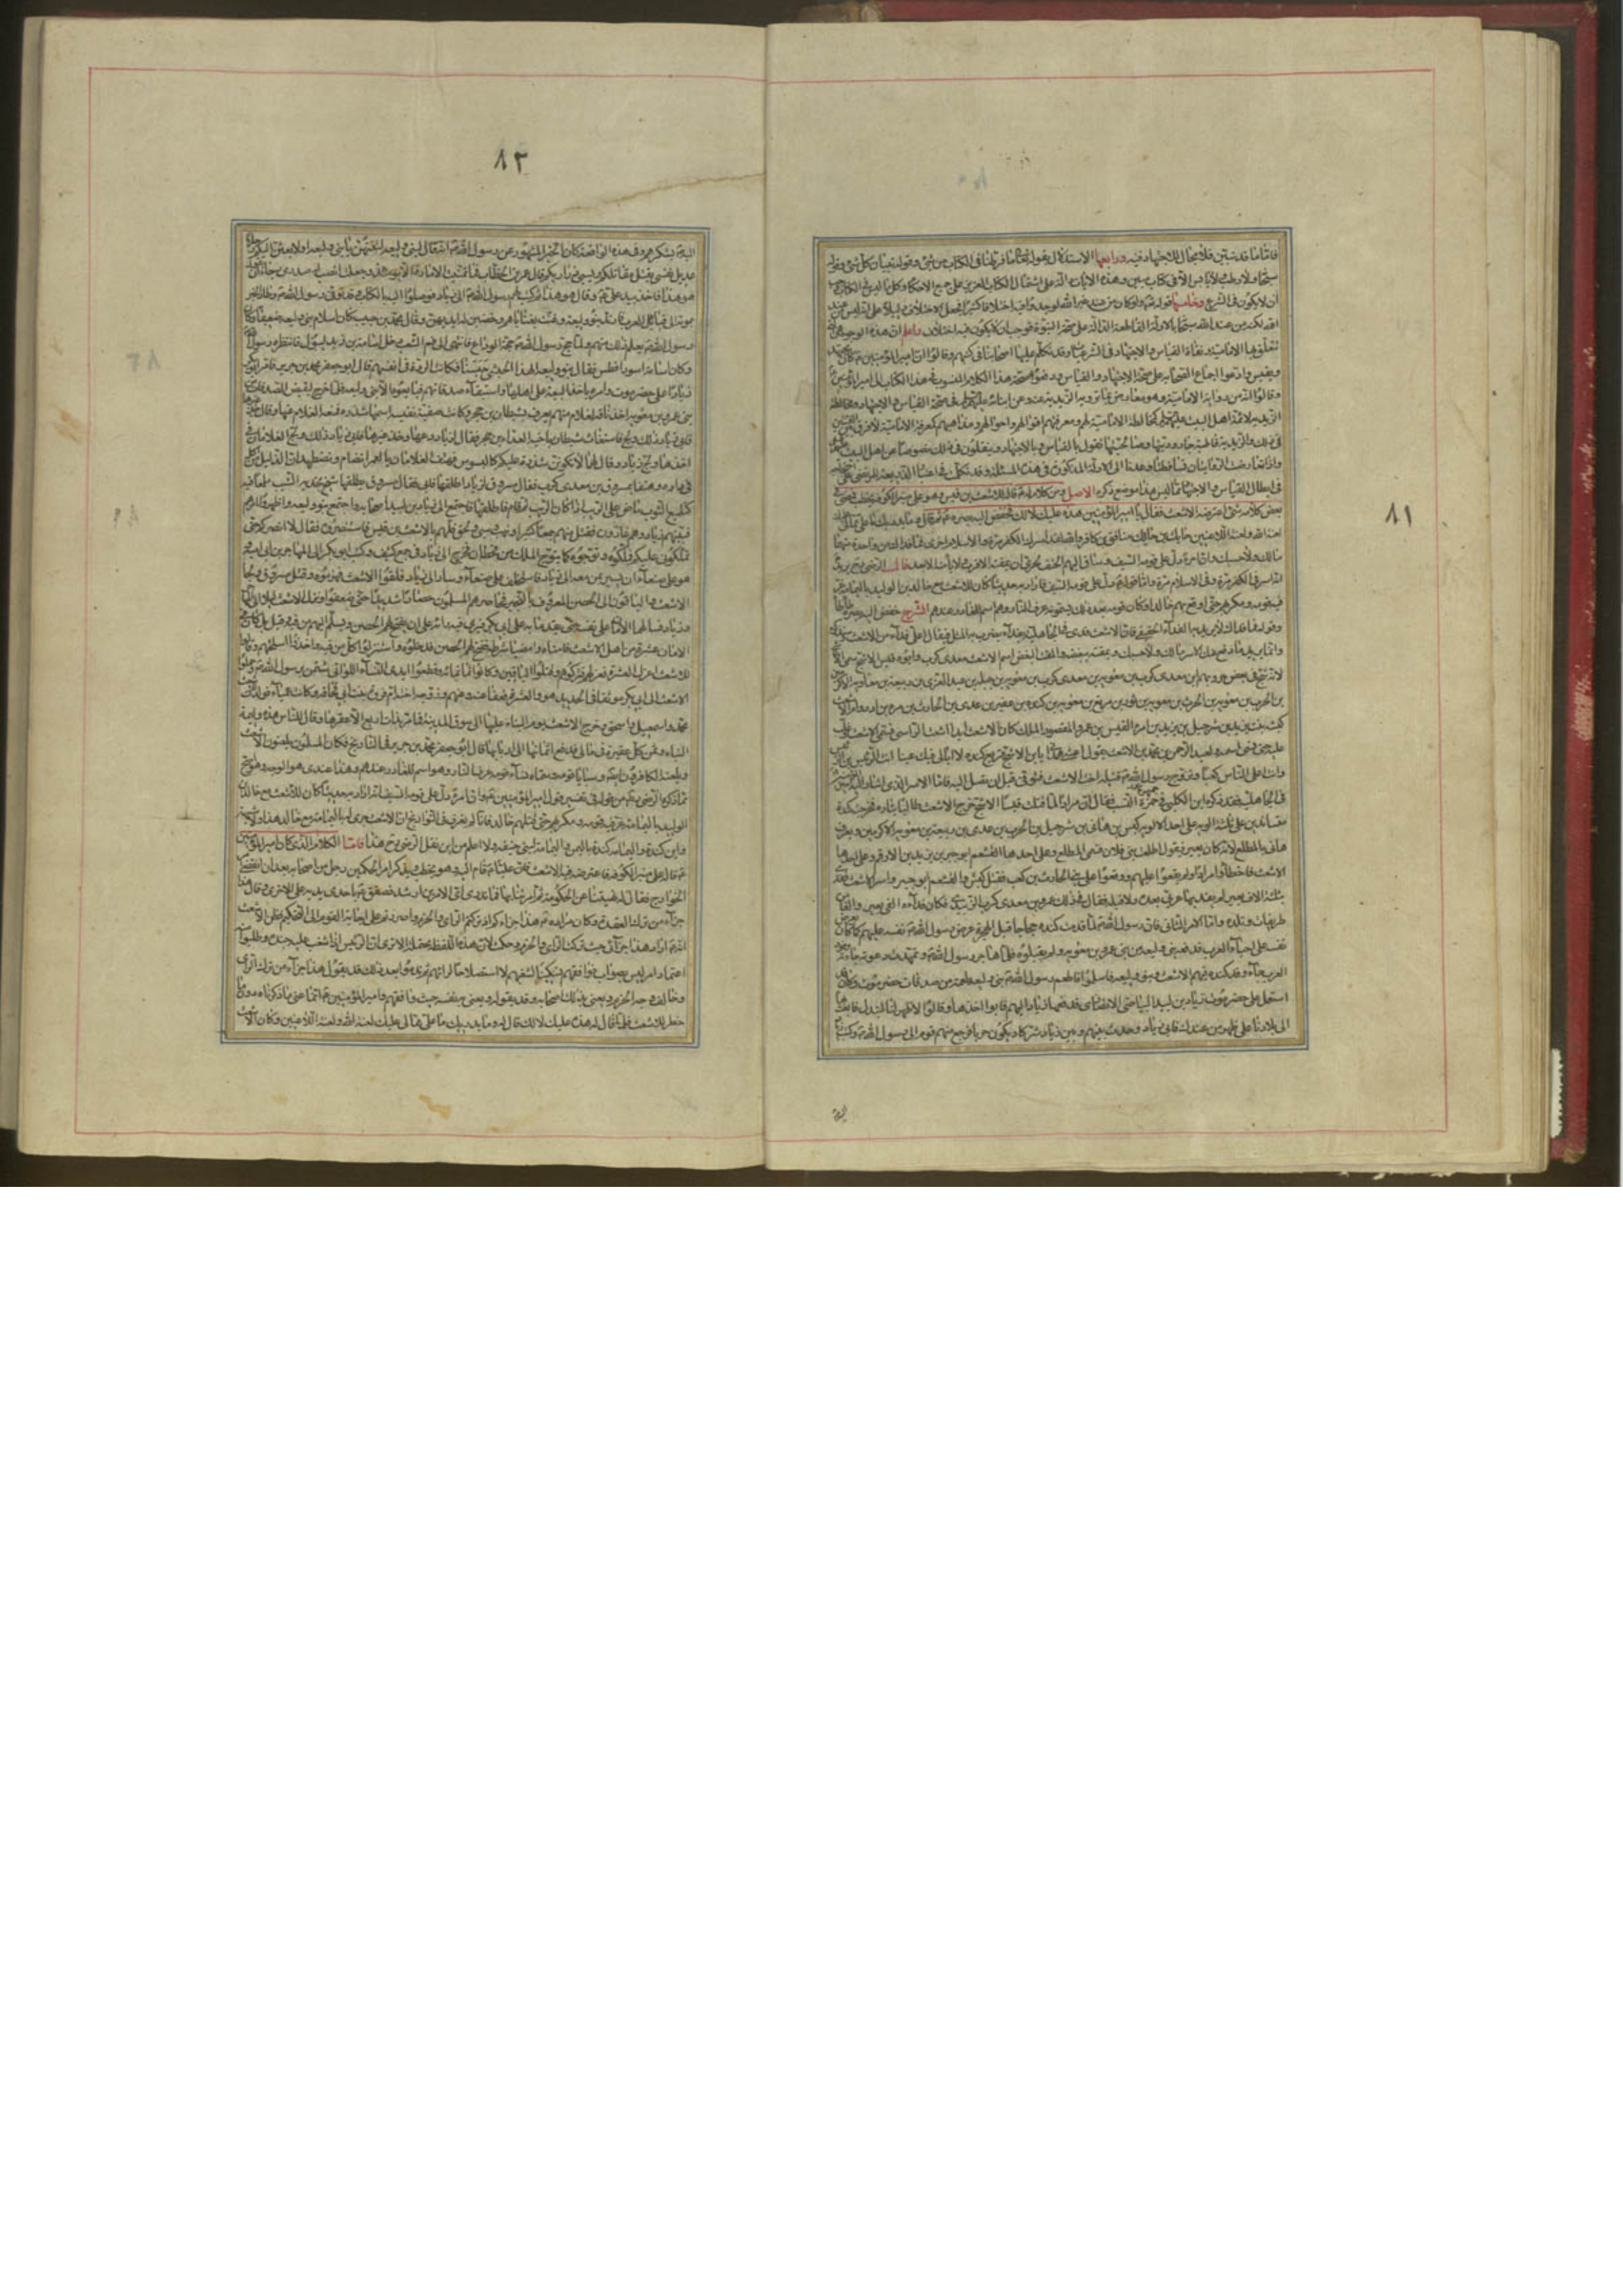 ١١
فاما ما قد تبين فلا مجال للاجتهاد فيه ورابعها الاستدلال بقوله تعالى ما فرطنا فى الكتاب من شئ وقوله تبيانا لكل شئ وقوله
سبحانه ولا رطب ولا يابس الا فى كتاب مبين وهذه الايات دالة على اشتمال الكتاب العزيز على جميع الاحكام وكل ما ليس فى الكتاب وجب
ان لا يكون فى الشرع وخامسها قوله تعالى ولو كان من عند غير الله لوجدوا فيه اختلافا كثيرا فجعل الاختلاف دليلا على انه ليس من عند
الله لكنه من عند الله سبحانه بالادلة القاطعة الدالة على صحة النبوة فوجب ان لا يكون فيه اختلاف واعلم ان هذه الوجوه هى التى
تتعلق بها الامامية ونفاة القياس والاجتهاد فى الشرعيات وقد تكلم عليها اصحابنا فى كتبهم وقالوا ان امير المؤمنين كان يجتهد
ويقيس وادعوا اجماع الصحابة على صحة الاجتهاد والقياس ودفعوا صحة هذا الكلام المنسوب فى هذا الكتاب الى امير المؤمنين
وقالوا انه من رواية الامامية وهو معارض بما ترويه الزيدية عنه وعن ابنائه عليهم السلام فى صحة القياس والاجتهاد ومخالطة
الزيدية لائمة اهل البيت عليهم السلام كمخالطة الامامية لهم ومعرفتهم اقوالهم واحوالهم ومذاهبهم كمعرفة الامامية لا فرق بين الفئتين
فى ذلك والزيدية قاطبة جاروديتها وصالحيتها تقول بالقياس والاجتهاد وينقلون فى ذلك نصوصا عن اهل البيت
واذا تعارضت الروايتان تساقطتا وعدنا الى الادلة المذكورة فى هذه المسئلة وقد تكلمت فى اعتبار الذريعة للمرتضى على احتجاجه
فى ابطال القياس والاجتهاد بما ليس هذا موضع ذكره الاصل ومن كلام له ع قاله للاشعث بن قيس وهو على منبر الكوفة يخطب فمضى فى
بعض كلامه شئ اعترضه الاشعث فقال يا امير المؤمنين هذه عليك لا لك فخفض اليه بصره ع ثم قال وما يدريك ما على مما لى عليك
لعنة الله ولعنة اللاعنين حائك بن حائك منافق بن كافر والله لقد اسرك الكفر مرة والاسلام اخرى فما فداك من واحدة منهما
مالك ولا حسبك وان امرء دل على قومه السيف وساق اليهم الحتف لحرى ان يمقته الاقرب ولا يأمنه الابعد قال الرضى رح يريد
انه اسر فى الكفر مرة وفى الاسلام مرة واما قوله دل على قومه السيف فاراد به حديثا كان للاشعث مع خالد بن الوليد باليمامة غر
فيه قومه ومكر بهم حتى اوقع بهم خالد وكان قومه بعد ذلك يسمونه عرف النار وهو اسم للغادر عندهم الشرح خفض اليه بصره طأطأه
وقوله فما فداك لا يريد به الفداء الحقيقى فان الاشعث فدى فى الجاهلية بفداء يضرب به المثل فيقال اغلى فداء من الاشعث وسنذكره
وانما يريد ما دفع عنك الاسر مالك ولا حسبك ويمقته يبغضه والمقت البغض اسم الاشعث معدى كرب وابوه قيس الاشج سمى الاشج
لانه شج فى بعض حروبهم ابن معدى كرب بن معوية بن معدى كرب بن معوية بن جبلة بن عبد العزى بن ربيعة بن معاوية الاكرمين
بن الحرث بن معوية بن الحرث بن معوية بن ثور بن مرتع بن معوية بن كندة بن عفير بن عدى بن الحارث بن مرة بن ادد وام الاشعث
كبشة بنت يزيد بن شرحبيل بن يزيد بن امرء القيس بن عمرو المقصور الملك كان الاشعث ابدا اشعث الرأس فسمى الاشعث وغلب
عليه حتى نسى اسمه ولعبد الرحمن بن محمد بن الاشعث يقول اعشى همدان يابن الاشج قريع كندة لا ابالى فيك عتبا انت الرئيس بن الرئيس
وانت اعلى الناس كعبا وتزوج رسول الله ص قتيلة اخت الاشعث فتوفى قبل ان تصل اليه فاما الاسر الذى اشار اليه امير المؤمنين
فى الجاهلية فقد ذكره ابن الكلبى فى جمهرة النسب فقال ان مرادا لما قتلت قيسا الاشج خرج الاشعث طالبا بثاره فخرجت كندة
متساندين على ثلثة الوية على احد الالوية كبس بن هانى بن شرحبيل بن الحرث بن عدى بن ربيعة بن معوية الاكرمين ويعرف
هانى بالمطلع لانه كان يغير فيقول اطلعت بنى فلان فسمى المطلع وعلى احدها القشعم ابو جبر بن يزيد بن الارقم وعلى احدها
الاشعث فاخطأوا مرادا ولم يقعوا عليهم ووقعوا على بنى الحارث بن كعب فقتل كبس والقشعم ابو جبر واسر الاشعث ففدى
بثلثة الاف بعير لم يفد بها عربى بعده ولا قبله فقال فى ذلك عمرو بن معدى كرب الزبيدى فكان فداءه الفى بعير والفا من
طريفات وتلد واما الاسر الثانى فان رسول الله ص لما قدمت كندة حجاجا قبل الهجرة عرض رسول الله ص نفسه عليهم كما كان يعرض
نفسه على احياء العرب فدفعه بنو وليعة من بنى عمرو بن معوية ولم يقبلوه فلما هاجر رسول الله ص وتمهدت دعوته وجاءته وفود
العرب جاءه وفد كندة فيهم الاشعث وبنو وليعة فاسلموا فاطعم رسول الله ص بنى وليعة طعمة من صدقات حضرموت وكان قد
استعمل على حضرموت زياد بن لبيد البياضى الانصارى فدفعها زياد اليهم فابوا اخذها وقالوا لا ظهر لنا فابعث بها
الى بلادنا على ظهر من عندك فابى زياد وحدث بينهم وبين زياد شر كاد يكون حربا فرجع منهم قوم الى رسول الله ص وكتب
١٢
اليه ع يشكوهم وفى هذه الواقعة كان الخبر المشهور عن رسول الله ص انه قال لبنى وليعة لتنتهن يا بنى وليعة او لابعثن اليكم رجلا
عديل نفسى يقتل مقاتلتكم ويسبى ذراريكم قال عمر بن الخطاب فما تمنيت الامارة الا يومئذ وجعلت انصب له صدرى رجاء ان يقول
هو هذا فاخذ بيد على ع وقال هو هذا ثم كتب لهم رسول الله ص الى زياد فوصلوا اليه بالكتاب وقد توفى رسول الله ص وطار الخبر
بموته الى قبائل العرب فارتدت بنو وليعة وغنت بغاياهم وخضبن له ايديهن وقال محمد بن حبيب كان اسلام بنى وليعة ضعيفا وكان
رسول الله ص يعلم ذلك منهم ولما حج رسول الله ص حجة الوداع فانتهى الى فم الشعب دخل اسامة بن زيد ليبول فانتظره رسول الله
وكان اسامة اسود افطس فقال بنو وليعة هذا الحبشى حبسنا فكانت الردة فى انفسهم قال ابو جعفر محمد بن جرير فامر ابو بكر
زيادا على حضرموت وامره باخذ البيعة على اهلها واستيفاء صدقاتهم فبايعوه الا بنى وليعة فلما خرج ليقبض الصدقات من
بنى عمرو بن معوية اخذ ناقة لغلام منهم يعرف بشيطان بن حجر وكانت صفية نفيسة اسمها شذرة فمنعه الغلام عنها وقال خذ غيرها
فابى زياد ذلك ولج فاستغاث شيطان باخيه العداء بن حجر فقال لزياد دعها وخذ غيرها فابى زياد ذلك ولج الغلامان فى
اخذها ولج زياد وقال لهما لا تكونن شذرة عليكم كالبسوس فهتف الغلامان يا لعمرو انضام ونضطهد ان الذليل من اكل
فى داره وهتفا بمسروق بن معدى كرب فقال مسروق لزياد اطلقها فابى فقال مسروق يطلقها شيخ بخديه الشيب ملمع فيه
كتلميع الثوب ماض على الريب اذا كان الريب ثم قام فاطلقها فاجتمع الى زياد بن لبيد اصحابه واجتمع بنو وليعة واظهروا امرهم
فبيتهم زياد وهم غارون فقتل منهم جمعا كثيرا ونهب وسبى ولحق فلهم بالاشعث بن قيس فاستنصروه فقال لا انصركم حتى
تملكونى عليكم فملكوه وتوجوه كما يتوج الملك من قحطان فخرج الى زياد فى جمع كثيف وكتب ابو بكر الى المهاجر بن ابى امية
وهو على صنعاء ان يسير بمن معه الى زياد فاستخلف على صنعاء وسار الى زياد فلقوا الاشعث فهزموه وقتل مسروق ولجأ
الاشعث والباقون الى الحصن المعروف بالنجير فحاصرهم المسلمون حصارا شديدا حتى ضعفوا ونزل الاشعث ليلا الى المهاجر
وزياد فسالهما الامان على نفسه حتى يقدما به على ابى بكر فيرى فيه رايه على ان يفتح لهم الحصن ويسلم اليهم من فيه وقيل بل كان فى
الامان عشرة من اهل الاشعث فامناه وامضيا شرطه ففتح لهم الحصن فدخلوه واستنزلوا كل من فيه واخذوا اسلحتهم وقالوا
للاشعث اعزل العشرة فعزلهم فتركوهم وقتلوا الباقين وكانوا ثمانمائة وقطعوا ايدى النساء اللواتى شمتن برسول الله ص وحملوا
الاشعث الى ابى بكر موثقا فى الحديد هو والعشرة فعفا عنه وعنهم وزوجه اخته ام فروة بنت ابى قحافة وكانت عمياء فولدت للاشعث
محمدا واسمعيل واسحق وخرج الاشعث يوم البناء عليها الى سوق المدينة فما مر بذات اربع الا عقرها وقال للناس هذه وليمة
البناء وثمن كل عقيرة فى مالى فدفع اثمانها الى اربابها قال ابو جعفر محمد بن جرير فى التاريخ فكان المسلمون يلعنون الاشعث
ويلعنه الكافرون ايضا وسبايا قومه وسماه نساء قومه عرف النار وهو اسم للغادر عندهم وهذا عندى هو الوجه وهو اصح
مما ذكره الرضى رح من قوله فى تفسير قول امير المؤمنين ع وان امرء دل على قومه السيف انه اراد به حديثا كان للاشعث مع خالد بن
الوليد باليمامة غر فيه قومه ومكر بهم حتى قتلهم خالد فانا لم نعرف فى التواريخ ان الاشعث جرى له باليمامة مع خالد هذا ولا شبهه
واين كندة واليمامة كندة باليمن واليمامة لبنى حنيفة ولا اعلم من اين نقل الرضى رح هذا فاما الكلام الذى كان امير المؤمنين
ع قاله على منبر الكوفة فاعترضه فيه الاشعث فان عليا ع قام اليه وهو يخطب ويذكر امر الحكمين رجل من اصحابه بعد ان انقضى امر
الخوارج فقال له نهيتنا عن الحكومة ثم امرتنا بها فما ندرى اى الامرين ارشد فصفق ع باحدى يديه على الاخرى وقال هذا
جزاء من ترك العقدة وكان مراده ع هذا جزاءكم اذ تركتم الراى والحزم واصررتم على اجابة القوم الى التحكيم فظن الاشعث
انه ع اراد هذا جزائى حيث تركت الراى والحزم وحكمت لان هذه اللفظة محتملة الا ترى ان الرئيس اذا شغب عليه جنده وطلبوا منه
اعتماد امر ليس بصواب فوافقهم تسكينا لشغبهم لا استصلاحا لرايهم ثم ندموا بعد ذلك قد يقول هذا جزاء من ترك الراى
وخالف وجه الحزم ويعنى بذلك اصحابه وقد يقوله ويعنى به نفسه حيث وافقهم وامير المؤمنين ع انما عنى ما ذكرناه دون ما
خطر للاشعث فلما قال له هذه عليك لا لك قال له وما يدريك ما على مما لى عليك لعنة الله ولعنة اللاعنين وكان الاشعث